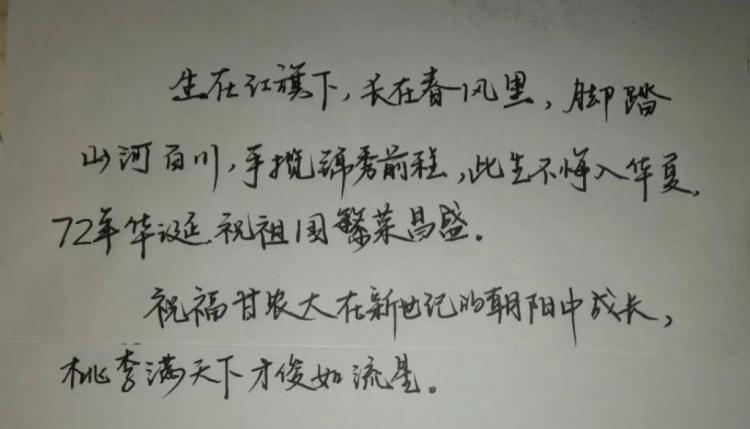 生在红旗下，长在春风里，脚踏
山河百川，手揽锦秀前程，此生不悔入华夏，
72年华诞祝祖国繁荣昌盛。
祝福甘农大在新世纪的朝阳中成长，
桃李满天下才俊如流星。